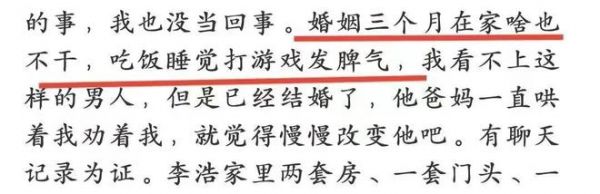 的事，我也没当回事。婚姻三个月在家啥也
不干，吃饭睡觉打游戏发脾气，我看不上这
样的男人，但是已经结婚了，他爸妈一直哄
着我劝着我，就觉得慢慢改变他吧。有聊天
记录为证。李浩家里两套房、一套门头、一